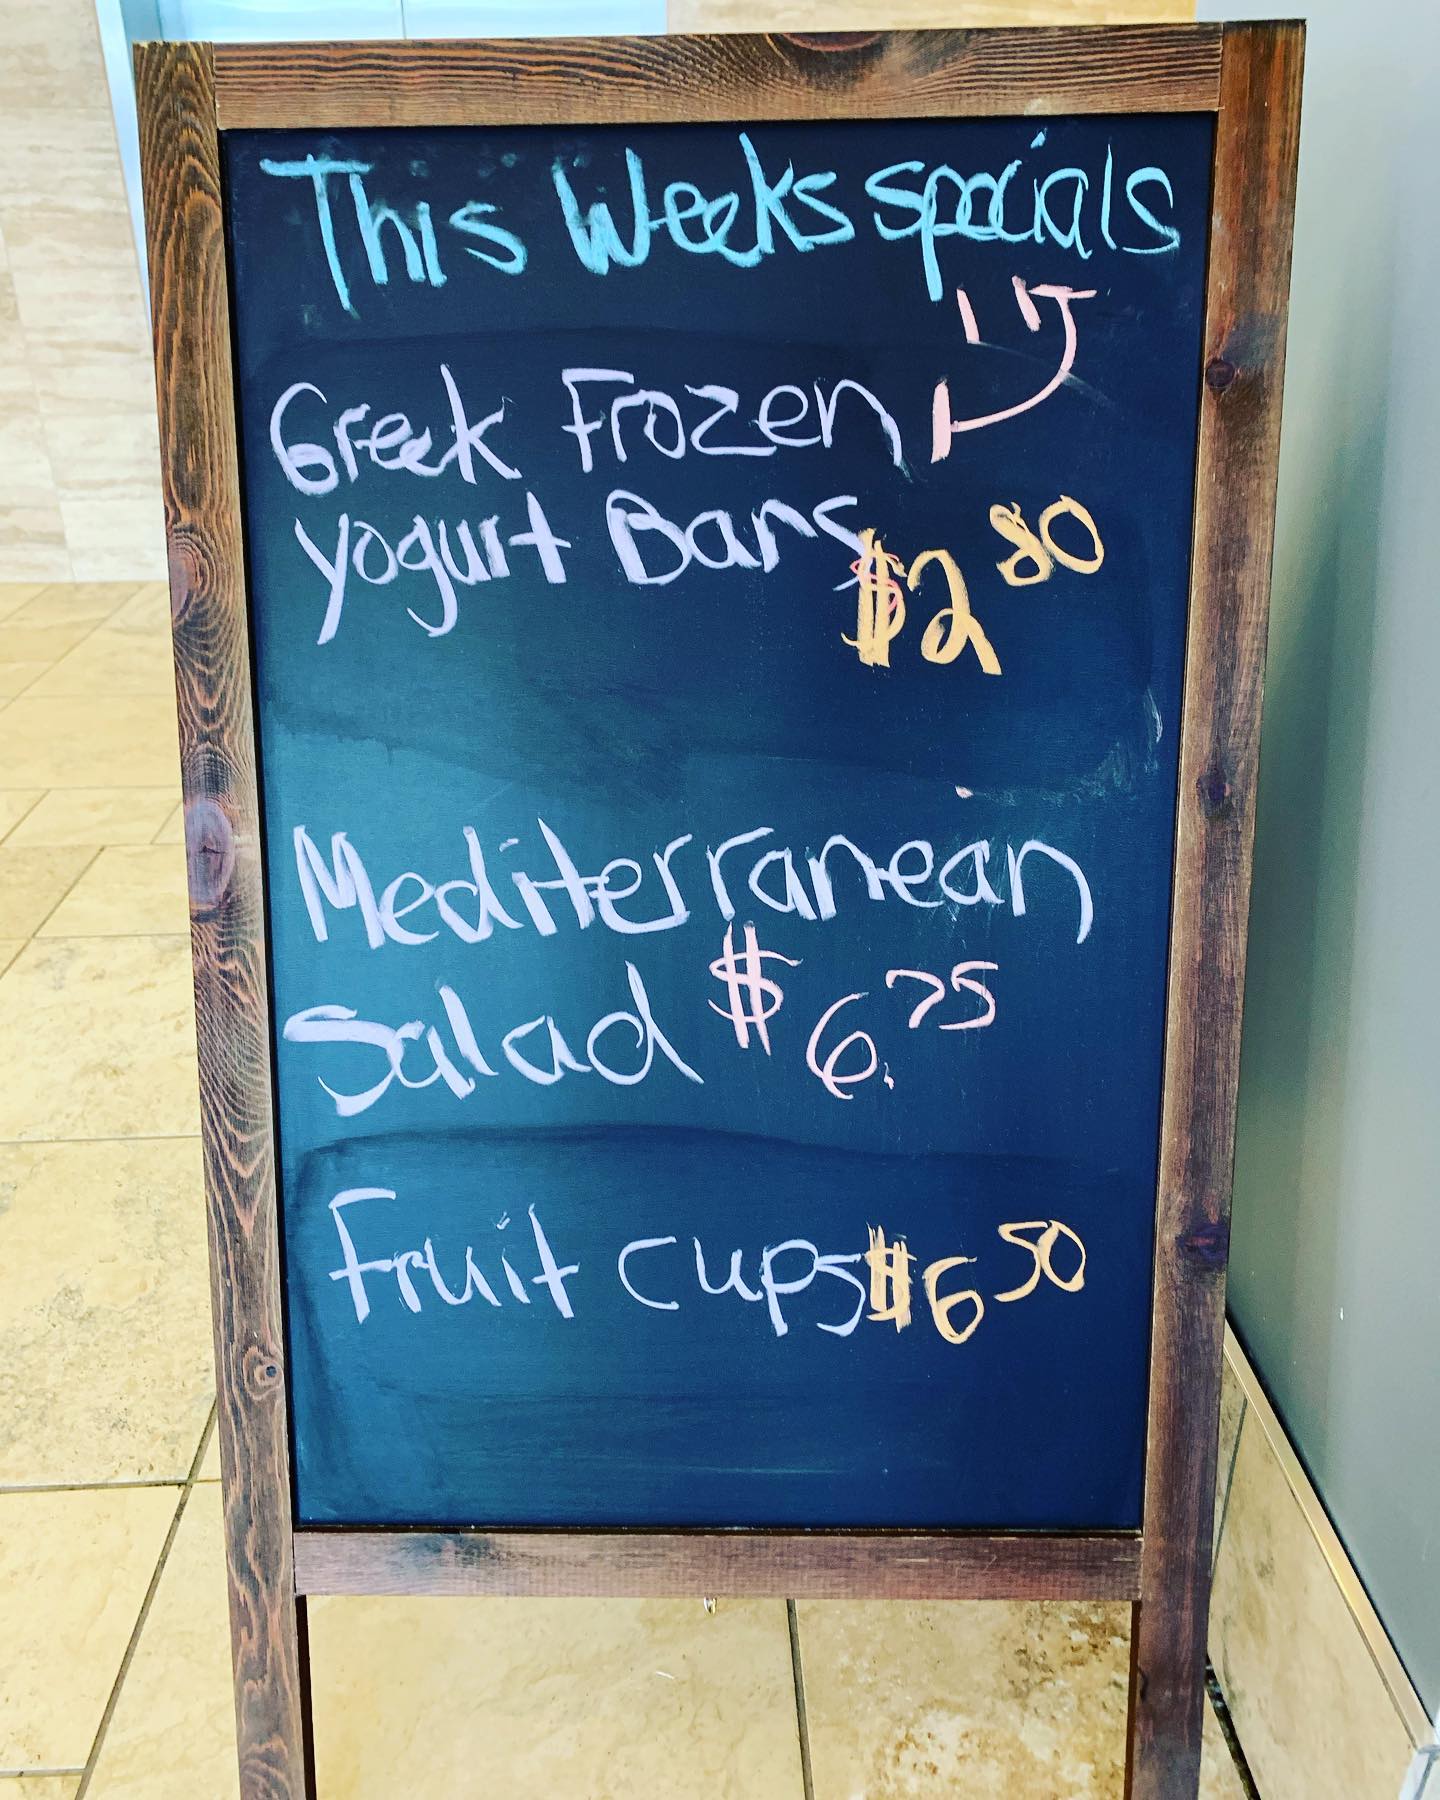 This Weeks specials
Greek Frozen
Yogurt Bars $2 80
Mediterranean
Salad $6.75
Fruit cups $6 50